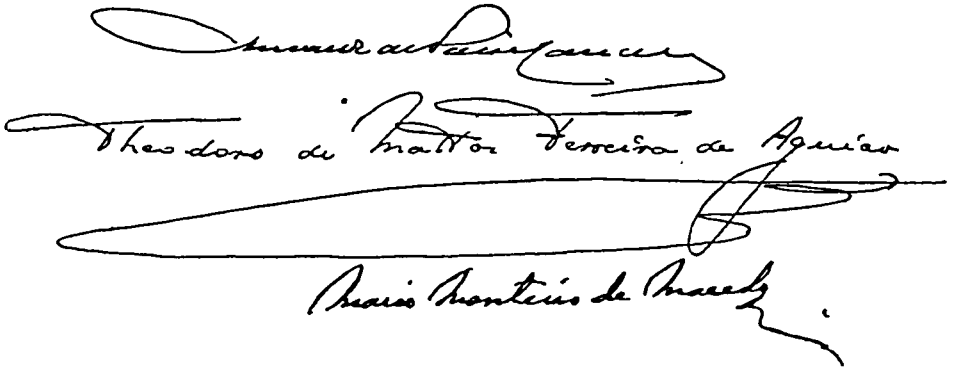 de
Theodoro de Mattos Ferreira de Aguiar
Mario Monteiro de Macedo